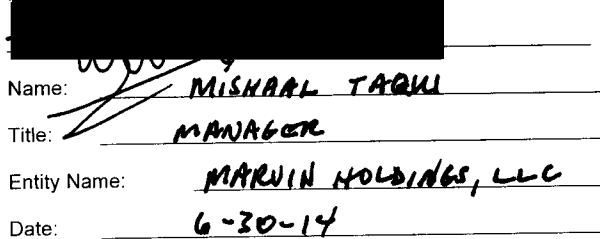 Name: MISHAAL TAQUI
Title: MANAGER
Entity Name: MARVIN HOLDINGS, LLC
Date: 6-30-14